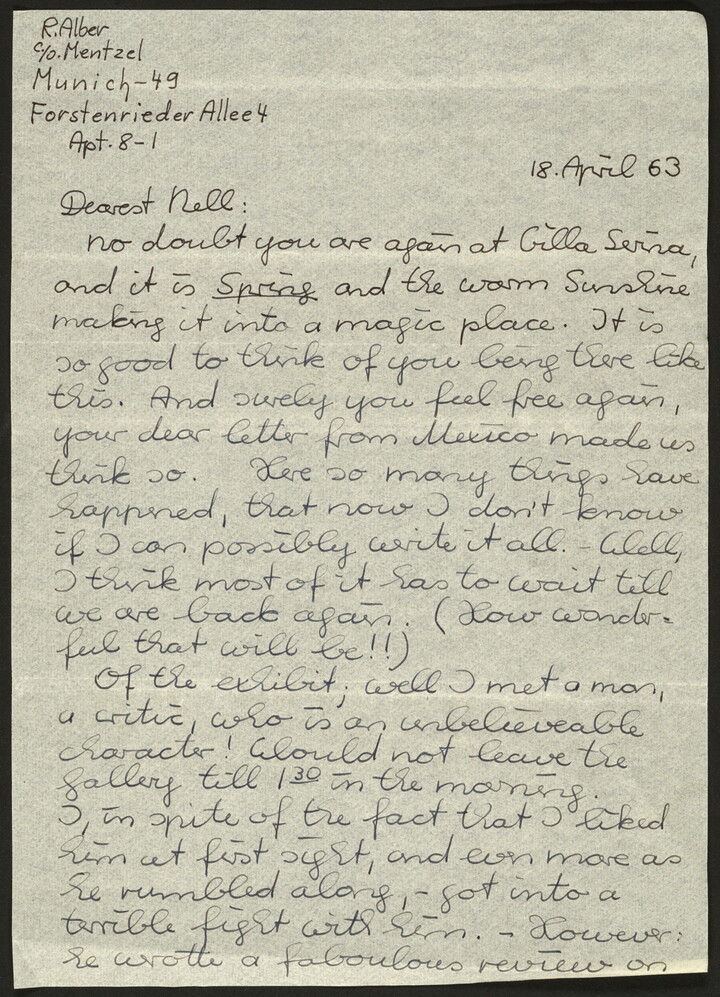 R. Alber
c/o. Mentzel
Munich-49
Forstenrieder Allee 4
Apt. 8-1
18. April 63
Dearest Nell:
no doubt you are again at Villa Serina,
and it is Spring and the warm Sunshine
making it into a magic place. It is
so good to think of you being there like
this. And surely you feel free again,
your dear letter from Mexico made us
think so. Here so many things have
happened, that now I don't know
if I can possibly write it all. - Well,
I think most of it has to wait till
we are back again. (How wonder=
ful that will be!!)
Of the exhibit; well I met a man,
a critic, who is an unbelieveable
character! Would not leave the
gallery till 1 30 in the morning.
I, in spite of the fact that I liked
him at first sight, and even more as
he rumbled along, - got into a
terrible fight with him. - However:
he wrote a faboulous review on